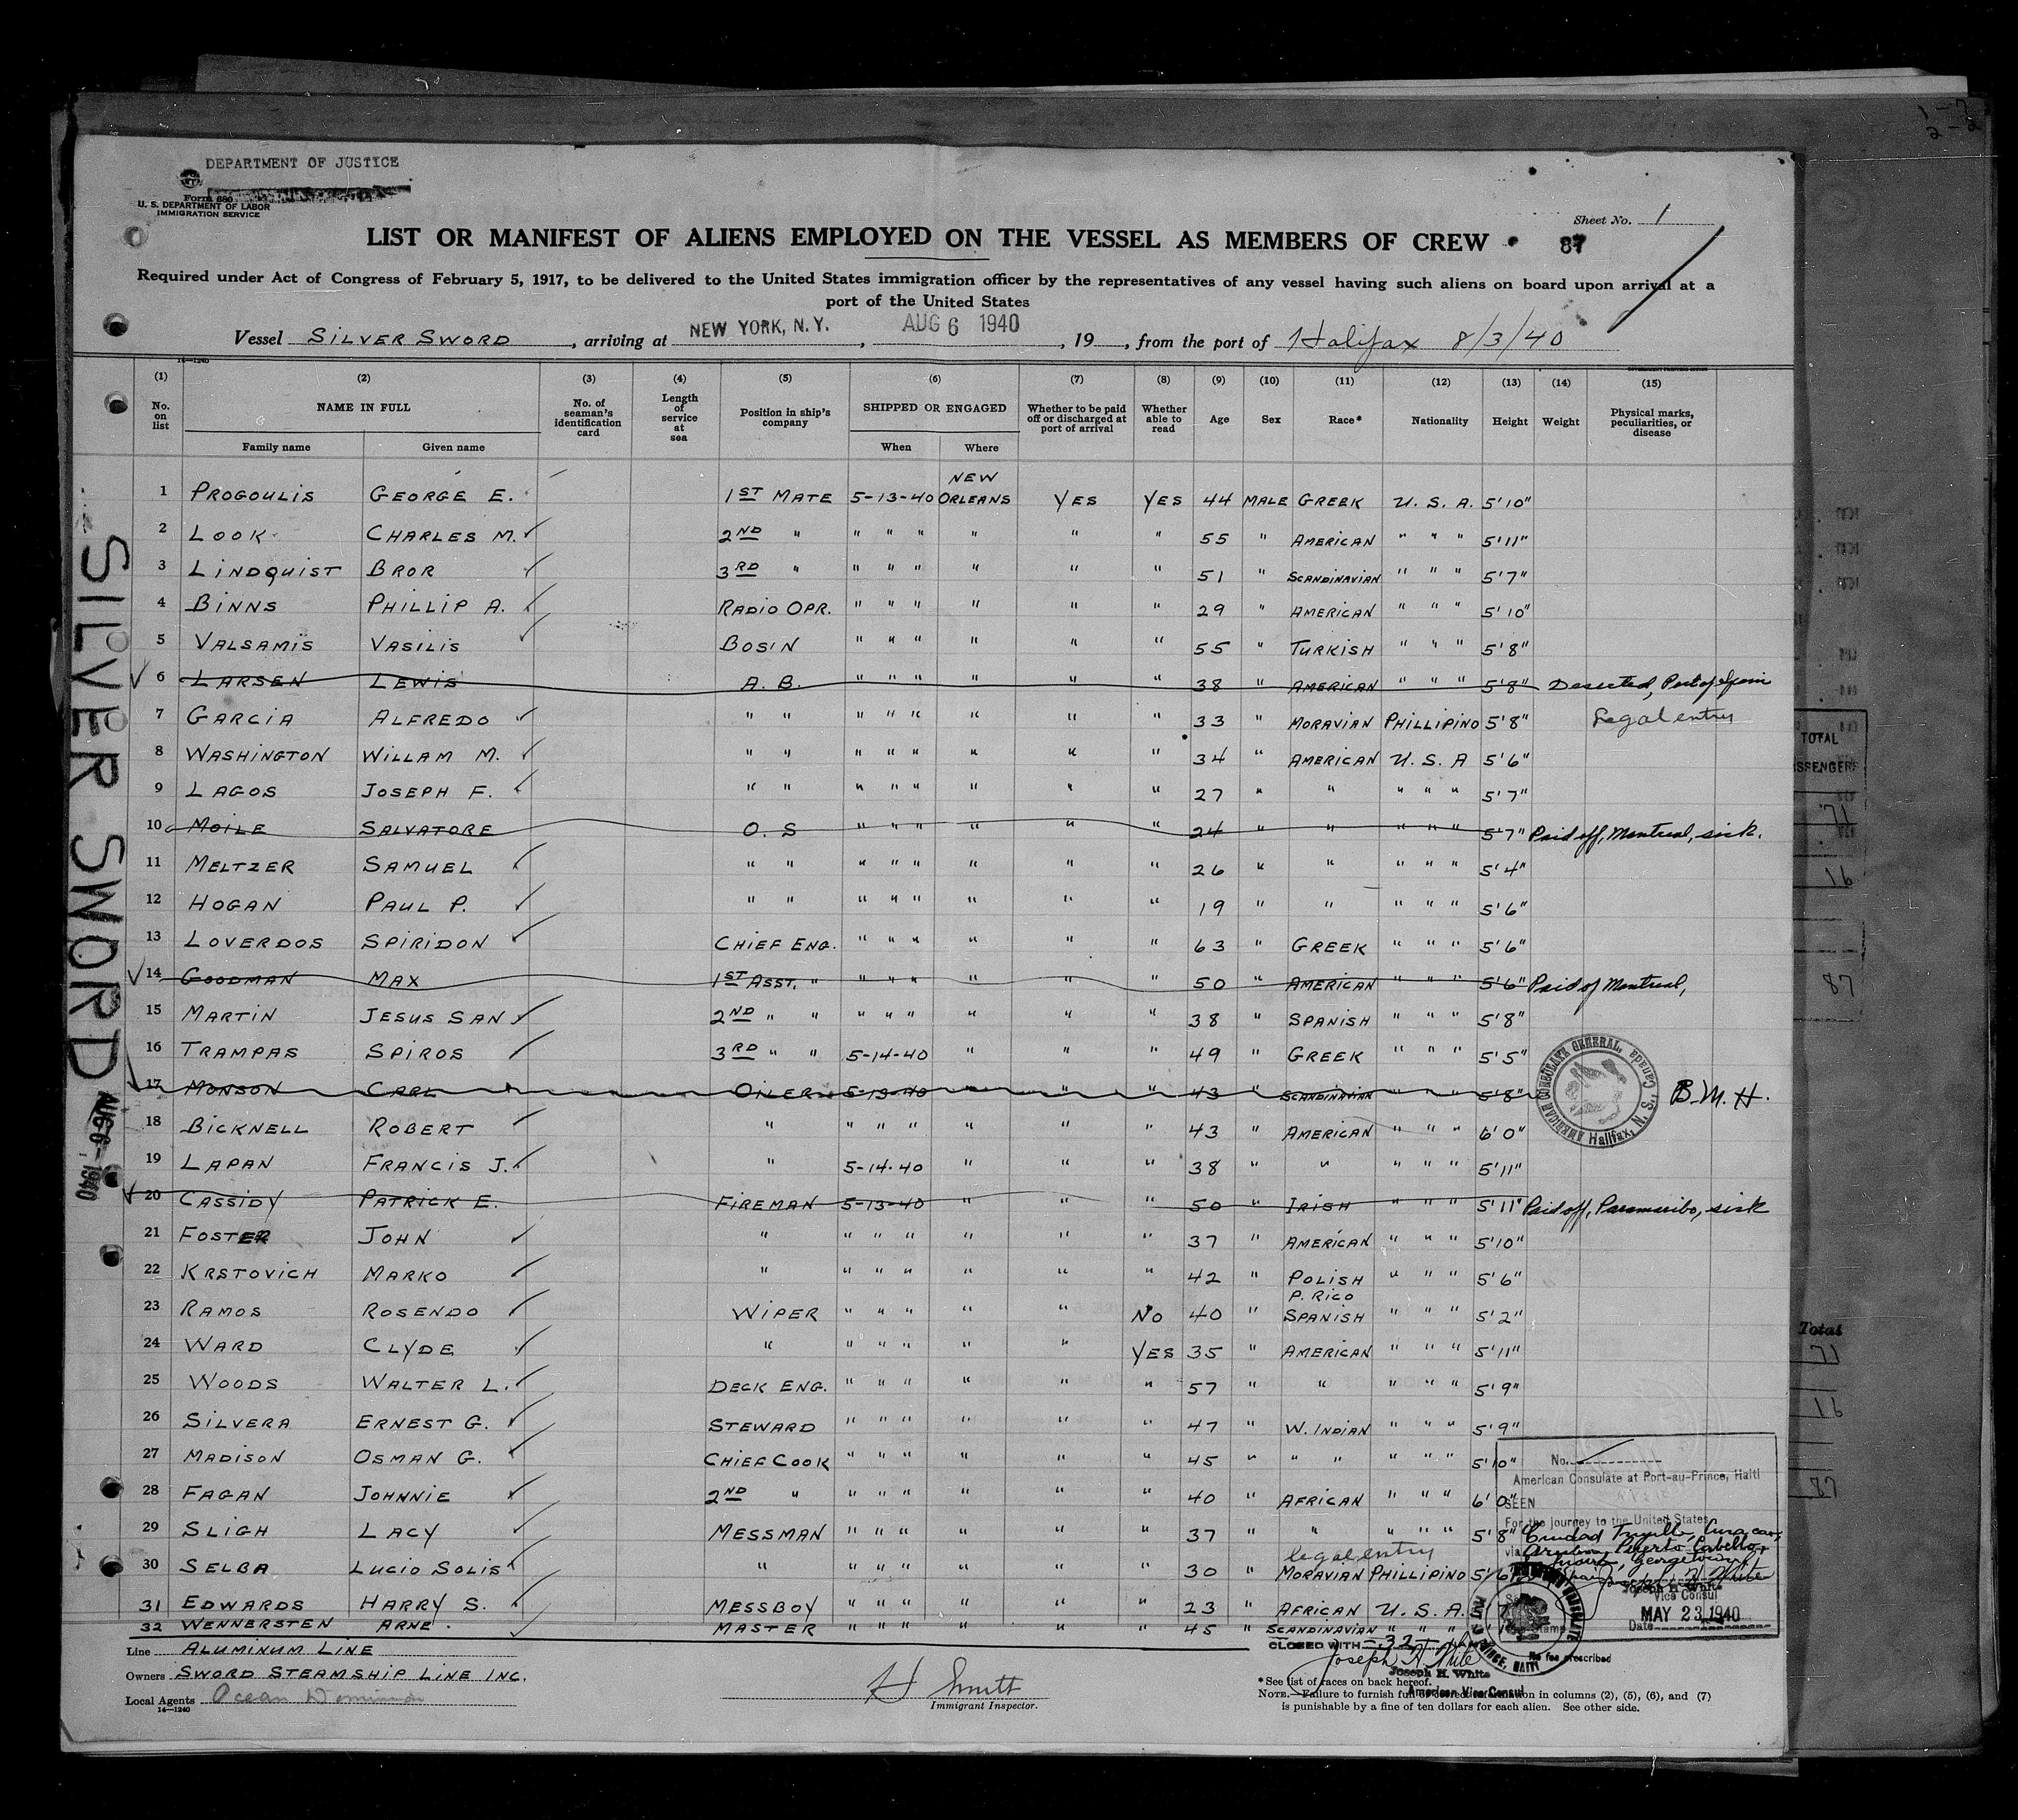 DEPARTMENT OF JUSTICE
Form 680
U. S. DEPARTMENT OF LABOR
IMMIGRATION SERVICE
Sheet No. 1
LIST OR MANIFEST OF ALIENS EMPLOYED ON THE VESSEL AS MEMBERS OF CREW
87
Required under Act of Congress of February 5, 1917, to be delivered to the United States immigration officer by the representatives of any vessel having such aliens on board upon arrival at a
port of the United States
Vessel SILVER SWORD, arriving at NEW YORK, N.Y., AUG 6 1940, 19 , from the port of Halifax 8/3/40
14—1240
(1) (2) (3) (4) (5) (6) (7) (8) (9) (10) (11) (12) (13) (14) (15)
No. on list NAME IN FULL No. of seaman's identification card Length of service at sea Position in ship's company SHIPPED OR ENGAGED Whether to be paid off or discharged at port of arrival Whether able to read Age Sex Race* Nationality Height Weight Physical marks, peculiarities, or disease
Family name Given name When Where
1 PROGOULIS GEORGE E. 1ST MATE 5-13-40 NEW ORLEANS YES YES 44 MALE GREEK U. S. A. 5'10"
2 LOOK CHARLES M. 2ND " " " " " " " 55 " AMERICAN " " " 5'11"
3 LINDQUIST BROR 3RD " " " " " " " 51 " SCANDINAVIAN " " " 5'7"
4 BINNS PHILLIP A. RADIO OPR. " " " " " " 29 " AMERICAN " " " 5'10
5 VALSAMIS VASILIS BOSIN " " " " " " 55 " TURKISH " " " 5'8"
6 LARSEN LEWIS A. B. " " " " " " 38 " AMERICAN " " " 5'8" Deserted, Port of Spain
7 GARCIA ALFREDO " " " " " " " " 33 " MORAVIAN PHILLIPINO 5'8" Legal entry
8 WASHINGTON WILLAM M. " " " " " " " " 34 " AMERICAN U. S. A 5'6"
9 LAGOS JOSEPH F. " " " " " " " " 27 " " " " " 5'7"
10 MOILE SALVATORE O. S " " " " " " 24 " " " " " 5'7" Paid off, Montreal, sick.
11 MELTZER SAMUEL " " " " " " " " 26 " " " " " 5'4"
12 HOGAN PAUL P. " " " " " " " " 19 " " " " " 5'6"
13 LOVERDOS SPIRIDON CHIEF ENG. " " " " " " 63 " GREEK " " " 5'6"
14 GOODMAN MAX 1ST ASST. " " " " " " " 50 " AMERICAN " " " 5'6" Paid of Montreal,
15 MARTIN JESUS SAN 2ND " " " " " " " " 38 " SPANISH " " " 5'8"
16 TRAMPAS SPIROS 3RD " " 5-14-40 " " " 49 " GREEK " " " 5'5"
17 MONSON CARL OILER 5-13-40 " " " 43 " SCANDINAVIAN " " " 5'8" B. M. H.
18 BICKNELL ROBERT " " " " " " " 43 " AMERICAN " " " 6'0"
19 LAPAN FRANCIS J. " 5-14-40 " " " 38 " " " " " 5'11"
20 CASSIDY PATRICK E. FIREMAN 5-13-40 " " " 50 " IRISH " " " 5'11" Paid off, Paramaribo, sick
21 FOSTER JOHN " " " " " " " 37 " AMERICAN " " " 5'10"
22 KRSTOVICH MARKO " " " " " " " 42 " POLISH " " " 5'6"
23 RAMOS ROSENDO WIPER " " " " " NO 40 " P. RICO SPANISH " " " 5'2"
24 WARD CLYDE " " " " " " YES 35 " AMERICAN " " " 5'11"
25 WOODS WALTER L. DECK ENG. " " " " " " 57 " " " " " 5'9"
26 SILVERA ERNEST G. STEWARD " " " " " " 47 " W. INDIAN " " " 5'9"
27 MADISON OSMAN G. CHIEF COOK " " " " " " 45 " " " " " " 5'10"
28 FAGAN JOHNNIE 2ND " " " " " " " 40 " AFRICAN " " " 6'0"
29 SLIGH LACY MESSMAN " " " " " " 37 " " " " " 5'8"
legal entry
30 SELBA LUCIO SOLIS " " " " " " " 30 " MORAVIAN PHILLIPINO 5'6"
31 EDWARDS HARRY S. MESSBOY " " " " " " 23 " AFRICAN U. S. A.
32 WENNERSTEN ARNE MASTER " " " " " " 45 " SCANDINAVIAN " " "
AMERICAN CONSULATE GENERAL, Halifax, N. S., Canada
No.
American Consulate at Port-au-Prince, Haiti
SEEN
For the journey to the United States
via Ciudad Trujillo, Curacao,
Puerto Cabello,
Georgetown
Joseph H. White
Vice Consul
MAY 23 1940
Date
No fee prescribed
CLOSED WITH 32
Joseph H. White
Joseph H. White
American Vice Consul
Line ALUMINUM LINE
Owners SWORD STEAMSHIP LINE INC.
Local Agents Ocean Dominion
14—1240
H Smitt
Immigrant Inspector.
* See list of races on back hereof.
NOTE.—Failure to furnish full or correct information in columns (2), (5), (6), and (7)
is punishable by a fine of ten dollars for each alien. See other side.
SILVER SWORD
AUG 6 1940
TOTAL
Total